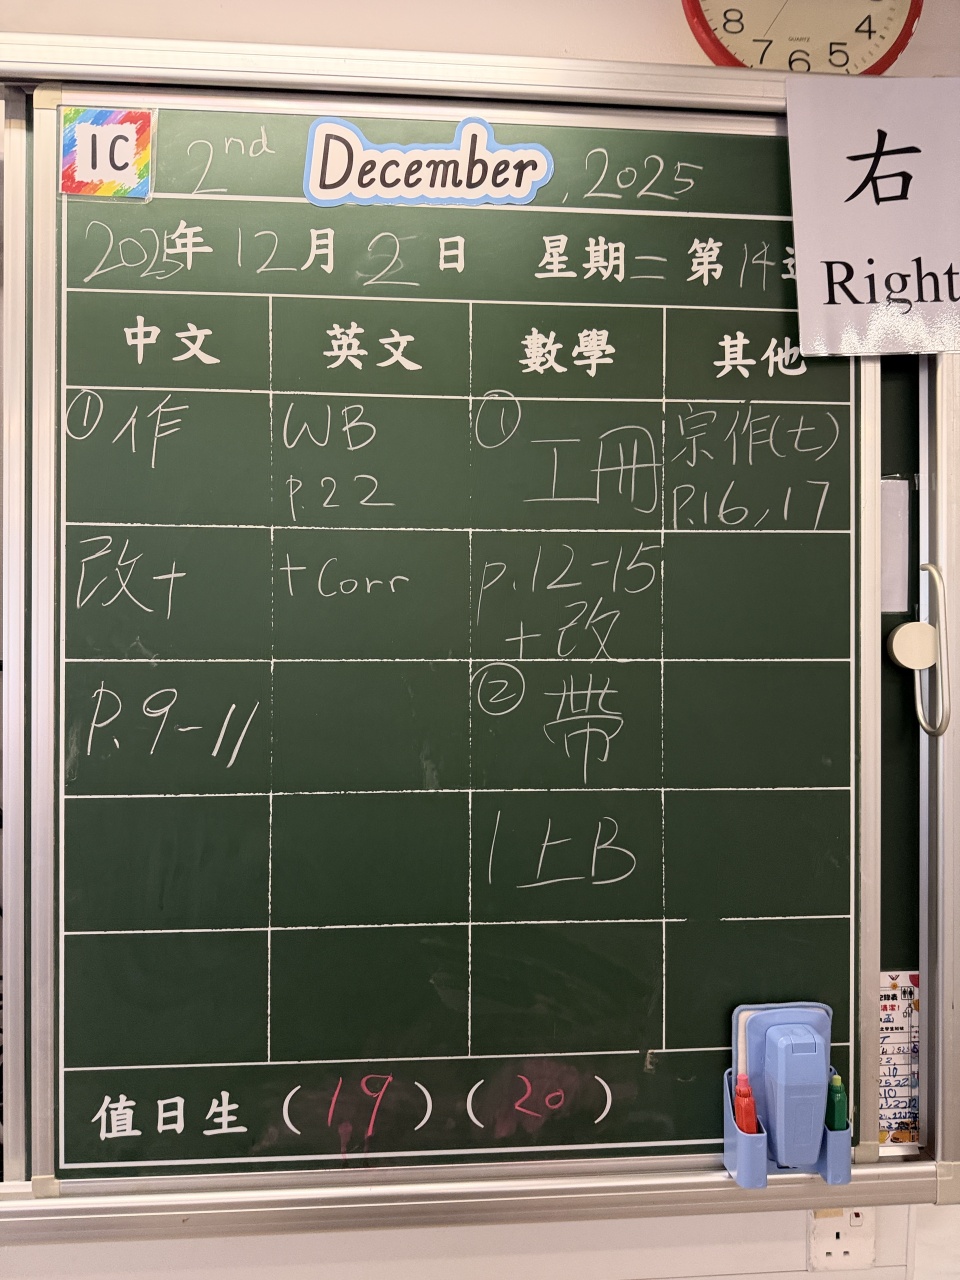 8 7 6 5 4
QUARTZ
1C
2nd December, 2025
右
Right
2025年12月2日 星期二 第14
中文 英文 數學 其他
①作
改+
P.9-11
WB
p.22
+Corr
①工冊
p.12-15
+改
②帶
1上B
宗作(七)
P.16,17
值日生(19)(20)